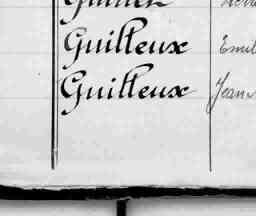 Guilleux Emil
Guilleux Jean